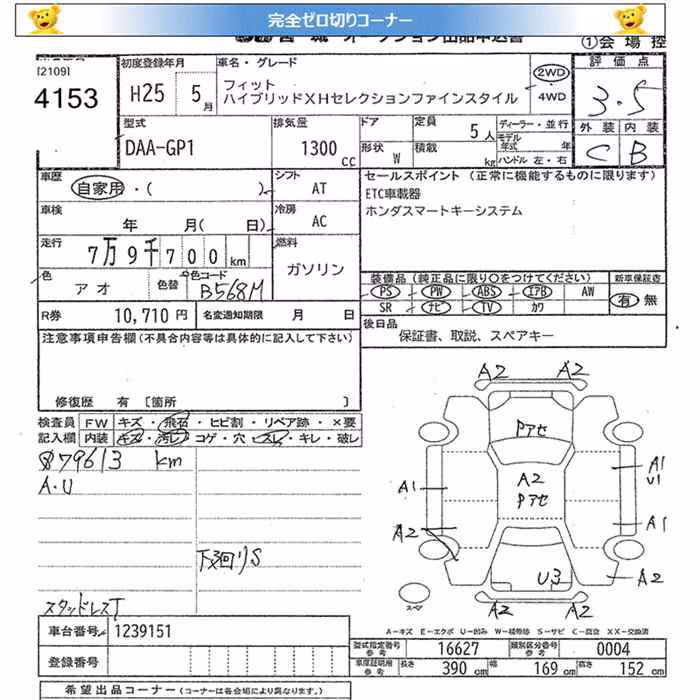 完全ゼロ切りコーナー
オークション出品申込書 ①会場控
[2109]
4153
初度登録年月 H25 5月
車名・グレード
フィット
ハイブリッドXHセレクションファインスタイル
2WD
・4WD
評価点
3.5
外装 内装
C B
型式
DAA-GP1
排気量
1300cc
ドア
形状 W
定員 5人
積載 kg
ディーラー・並行
モデル年式 年
ハンドル 左・右
車歴
自家用・( )
シフト
AT
車検
年 月( 日)
冷房
AC
走行
7万9千700km
燃料
ガソリン
色
アオ
色替
カラーコード
B568M
R券 10,710円
名変通知期限 月 日
セールスポイント (正常に機能するものに限ります)
ETC車載器
ホンダスマートキーシステム
装備品(純正品に限り○をつけてください) 新車保証書
PS PW ABS エアB AW 有・無
SR ナビ TV カワ
後日品
保証書、取説、スペアキー
注意事項申告欄(不具合内容等は具体的に記入して下さい)
修復歴 有 〔箇所 〕
検査員 FW キズ・飛石・ヒビ割・リペア跡・×要
記入欄 内装 キズ・汚レ・コゲ・穴・スレ・キレ・破レ
079613 km
A・U
下廻りS
スタッドレスT
A2 A2
Pアセ
A2
Pアセ
A1
A2
A1
U1
A1
A2
U3
A2 A2
スペア
A-キズ E-エクボ U-凹み W-補修跡 S-サビ C-腐食 XX-交換済
車台番号 1239151
登録番号
型式指定番号 参考 16627 類別区分番号 参考 0004
車庫証明用 参考 長さ 390cm 幅 169cm 高さ 152cm
希望出品コーナー(コーナーは各会場により異なります。)